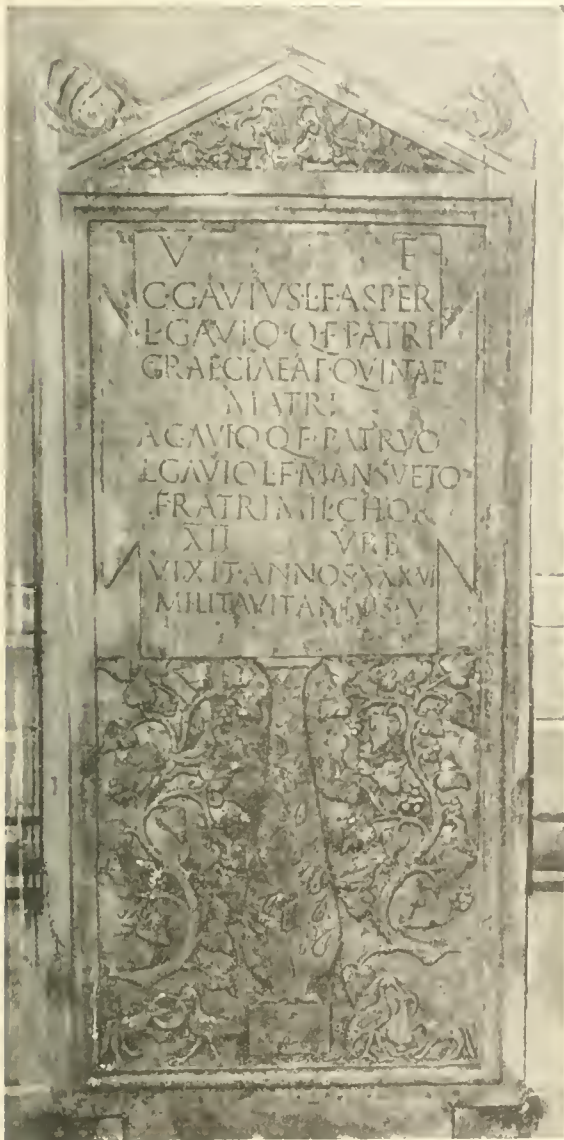 V F
C·GAVIVS·L·F·ASPER
L·GAVIO·Q·F·PATRI
GRAECINEAE·P·F·QVINTAE
MATRI
A·GAVIO·Q·F·PATRVO
L·GAVIO·L·F·MANSVETO
FRATRI·MIL·CHOR
XII VRB
VIXIT·ANNOS·XXXV
MILITAVIT·ANNOS·V